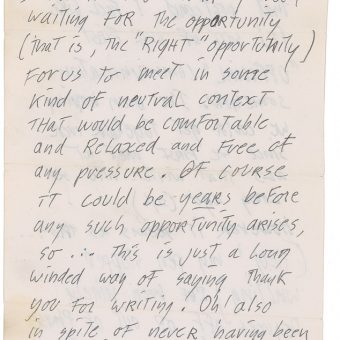 waiting FOR the opportunity
(that is, the "RIGHT" opportunity)
FOR us to meet in some
kind of neutral context
THAT would be comfortable
and Relaxed and free of
any pressure. Of course
IT could be years before
any such opportunity arises,
so ... This is just a long
winded way of saying thank
you for writing. Oh! also
in spite of never having been